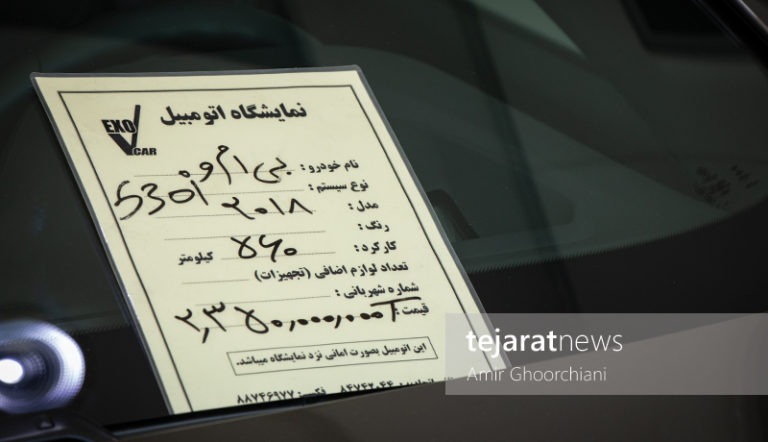 نمایشگاه اتومبیل
EXO
CAR
نام خودرو : بی ام و
نوع سیستم : 530i
مدل : ۲۰۱۸
رنگ :
کارکرد : ۷۶۰ کیلومتر
تعداد لوازم اضافی (تجهیزات)
شماره شهربانی :
قیمت : ۲,۳۷۰,۰۰۰,۰۰۰ T
این اتومبیل بصورت امانی نزد نمایشگاه میباشد.
۸۴۷۴۲۰۴۴ فکس: ۸۸۷۴۶۹۷۷
tejaratnews
Amir Ghoorchiani